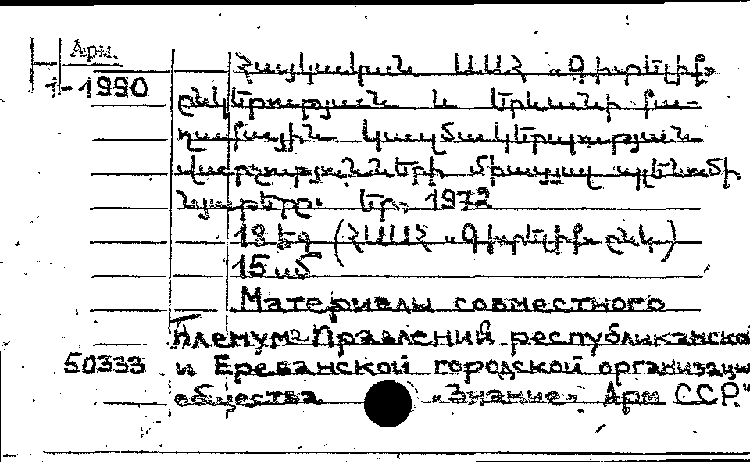 Арм.
1-1990
Հայկական ՍՍՀ «Գիտելիք»
ընկերության և Երևանի քա-
ղաքային կազմակերպության
վարչությունների միացյալ պլենումի
նյութերը. Եր., 1972
18 եջ (ՀՍՍՀ «Գիտելիք» ընկ.)
15 սմ
Материалы совместного
Пленума Правлений республиканской
50333
и Ереванской городской организации
общества «Знание» Арм ССР."